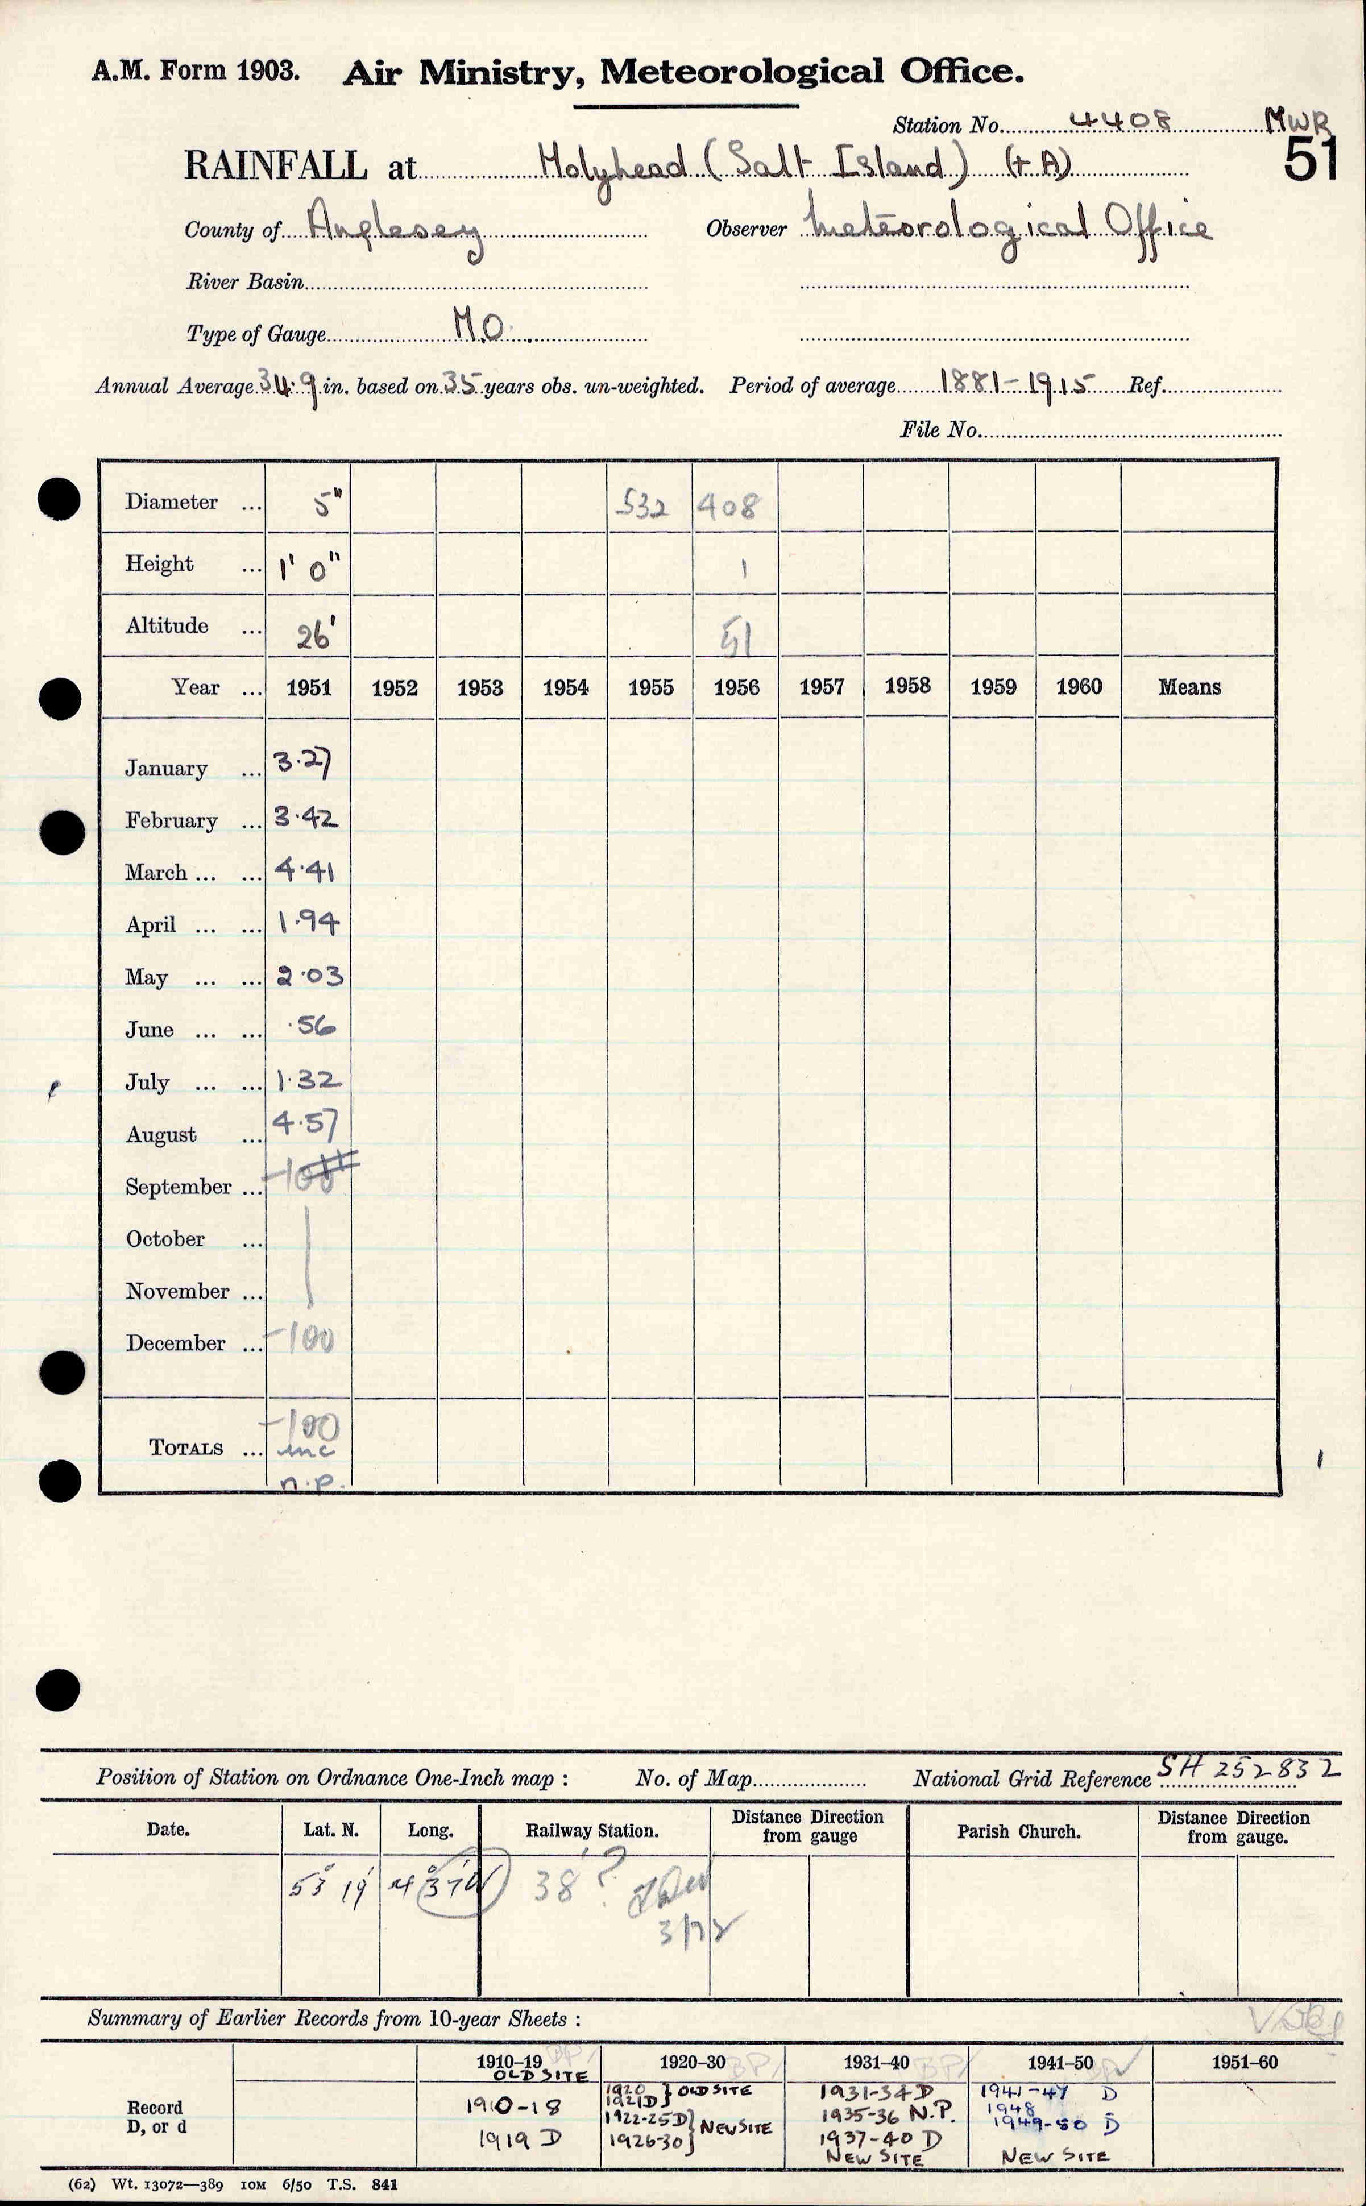 A.M. Form 1903. Air Ministry, Meteorological Office.
Station No. 4408 MWR
51
RAINFALL at Holyhead (Salt Island) (+ A)
County of Anglesey Observer Meteorological Office
River Basin
Type of Gauge M.O.
Annual Average 34.9 in. based on 35 years obs. un-weighted. Period of average 1881-1915 Ref.
File No.
Diameter ... 5" 532 408
Height ... 1' 0" 1
Altitude ... 26' 51
Year ... 1951 1952 1953 1954 1955 1956 1957 1958 1959 1960 Means
January ... 3.27
February ... 3.42
March ... ... 4.41
April ... ... 1.94
May ... ... 2.03
June ... ... .56
July ... ... 1.32
August ... 4.57
September ... -100
October ...
November ...
December ... -100
TOTALS ... -100
inc
n.p.
Position of Station on Ordnance One-Inch map : No. of Map National Grid Reference SH 252832
Date. Lat. N. Long. Railway Station. Distance Direction from gauge Parish Church. Distance Direction from gauge.
53° 19' 4° 37'W 38'?
3/72
Summary of Earlier Records from 10-year Sheets :
1910–19 1920–30 1931–40 1941–50 1951–60
Record D, or d
OLD SITE
1910-18
1919 D
1920 } OLD SITE
1921D }
1922-25D } NEW SITE
1926-30 }
1931-34 D
1935-36 N.P.
1937-40 D
NEW SITE
1941-47 D
1948
1949-50 D
NEW SITE
(62) Wt. 13072—389 10M 6/50 T.S. 841